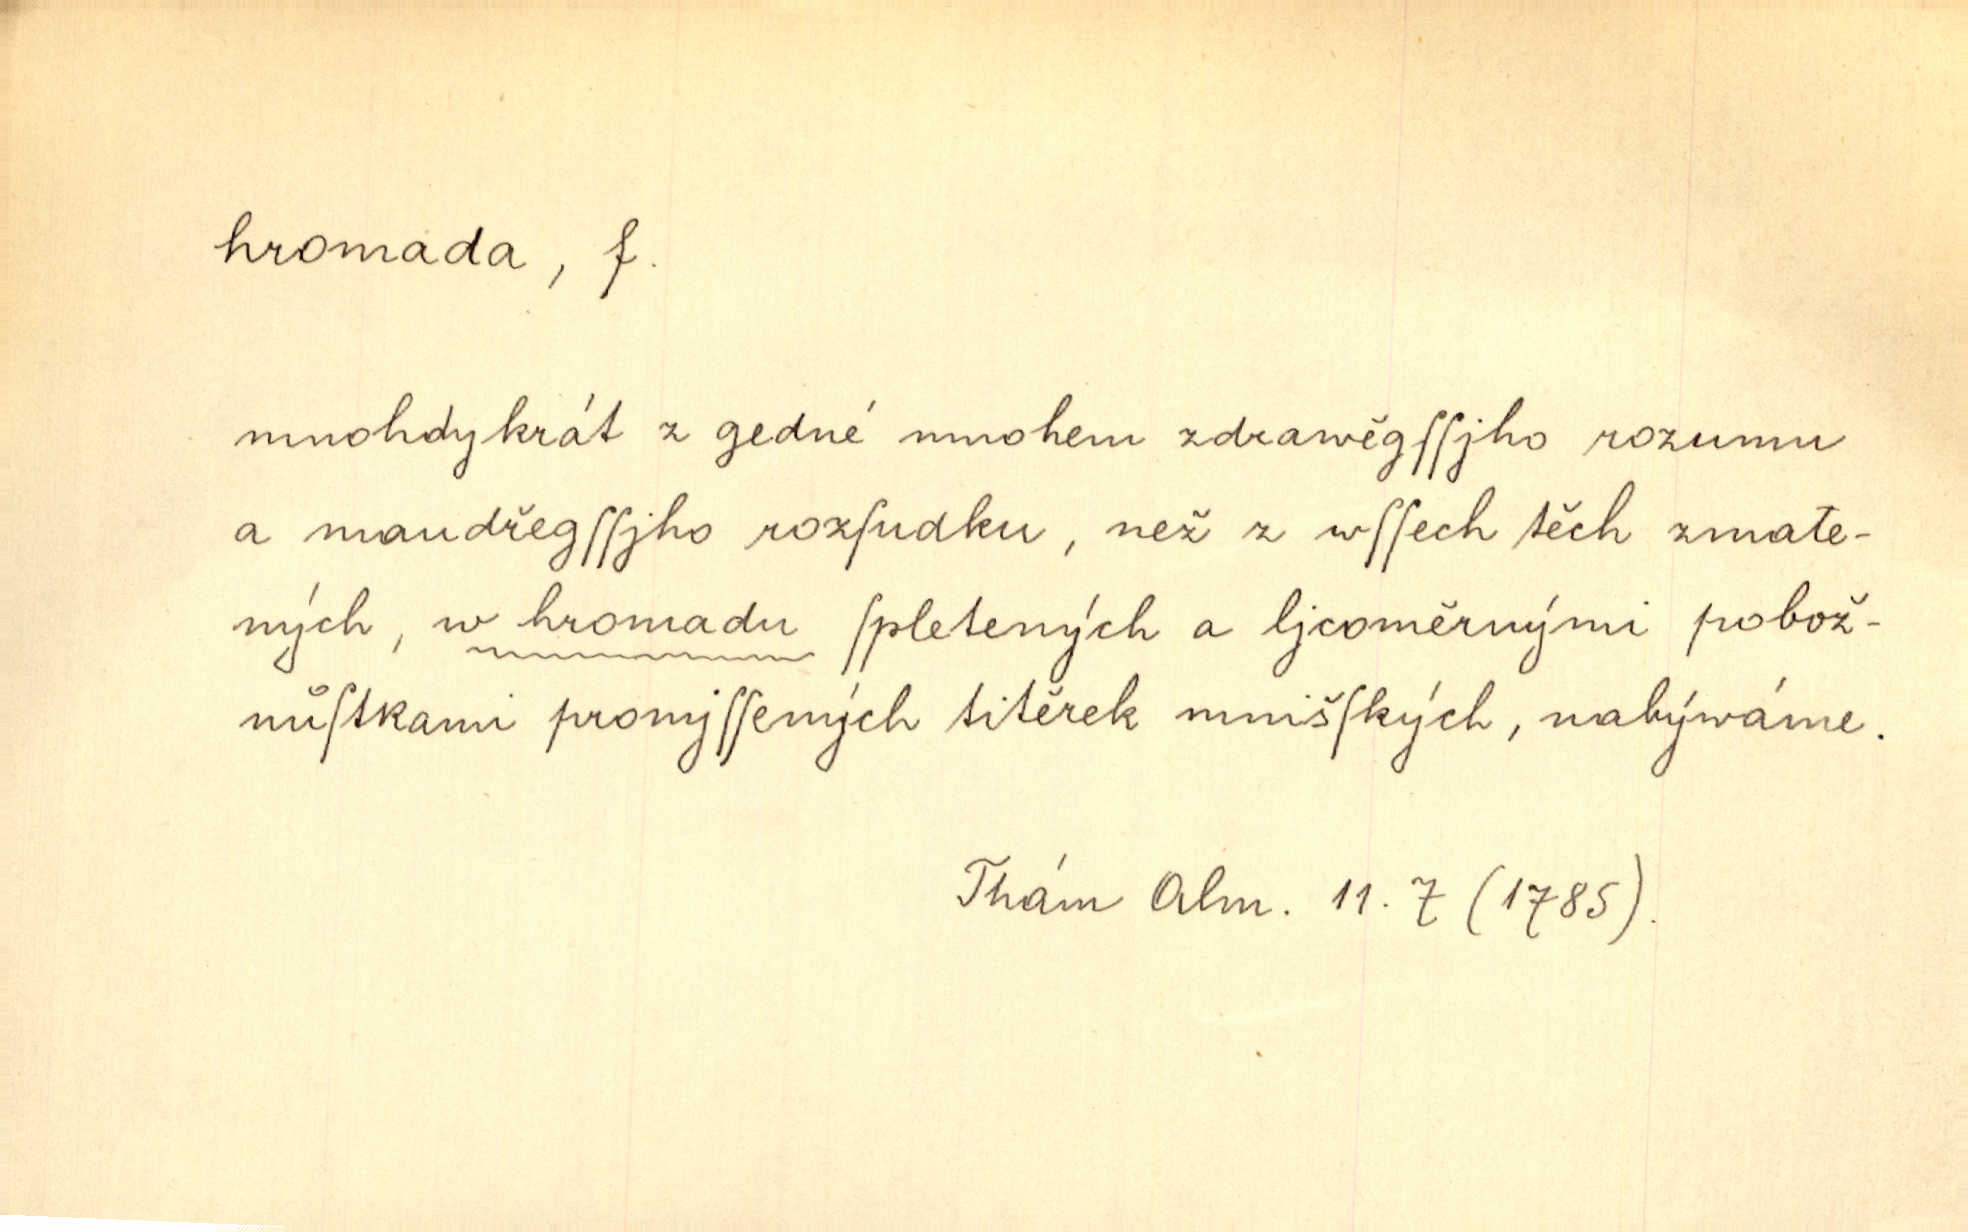 hromada, f.
mnohdykrát z gedné mnohem zdrawěgſſjho rozumu
a maudřegſſjho rozſudku, než z wſſech těch zmate-
ných, w hromadu ſpletených a ljcoměrnými pobož-
nůſtkami promyſſených titěrek mnišſkých, nabýwáme.
Thám Alm. 11. 7 (1785).